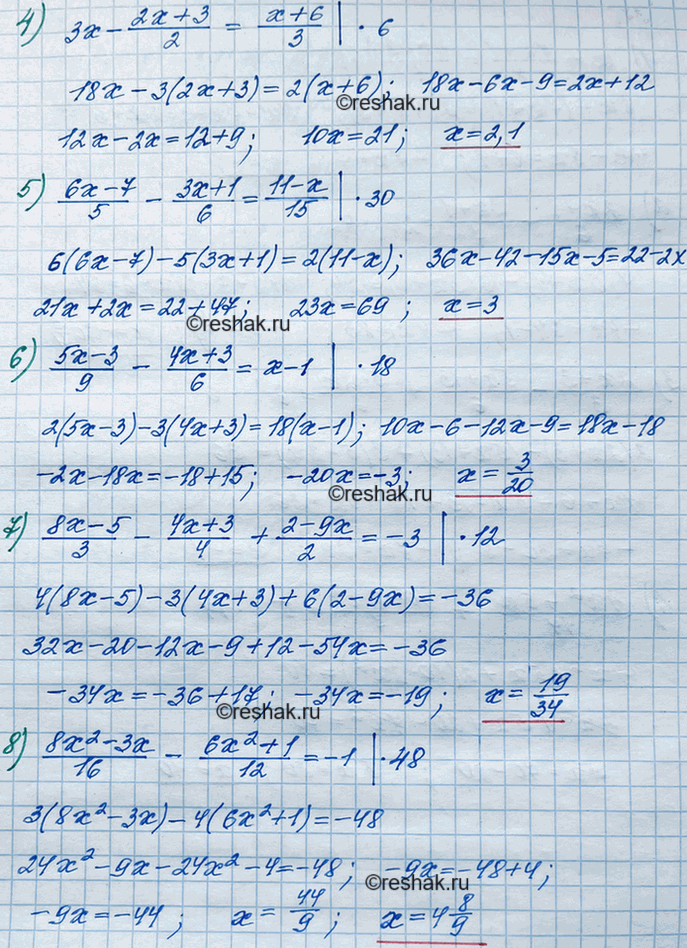 4) 3x - (2x+3)/2 = (x+6)/3 | · 6
18x - 3(2x+3) = 2(x+6); 18x - 6x - 9 = 2x + 12
©reshak.ru
12x - 2x = 12 + 9; 10x = 21; x = 2,1
5) (6x-7)/5 - (3x+1)/6 = (11-x)/15 | · 30
6(6x-7) - 5(3x+1) = 2(11-x); 36x - 42 - 15x - 5 = 22 - 2x
21x + 2x = 22 + 47; 23x = 69; x = 3
©reshak.ru
6) (5x-3)/9 - (4x+3)/6 = x - 1 | · 18
2(5x-3) - 3(4x+3) = 18(x-1); 10x - 6 - 12x - 9 = 18x - 18
-2x - 18x = -18 + 15; -20x = -3; x = 3/20
©reshak.ru
7) (8x-5)/3 - (4x+3)/4 + (2-9x)/2 = -3 | · 12
4(8x-5) - 3(4x+3) + 6(2-9x) = -36
32x - 20 - 12x - 9 + 12 - 54x = -36
-34x = -36 + 17; -34x = -19; x = 19/34
©reshak.ru
8) (8x²-3x)/16 - (6x²+1)/12 = -1 | · 48
3(8x²-3x) - 4(6x²+1) = -48
24x² - 9x - 24x² - 4 = -48; -9x = -48 + 4;
©reshak.ru
-9x = -44; x = 44/9; x = 4 8/9